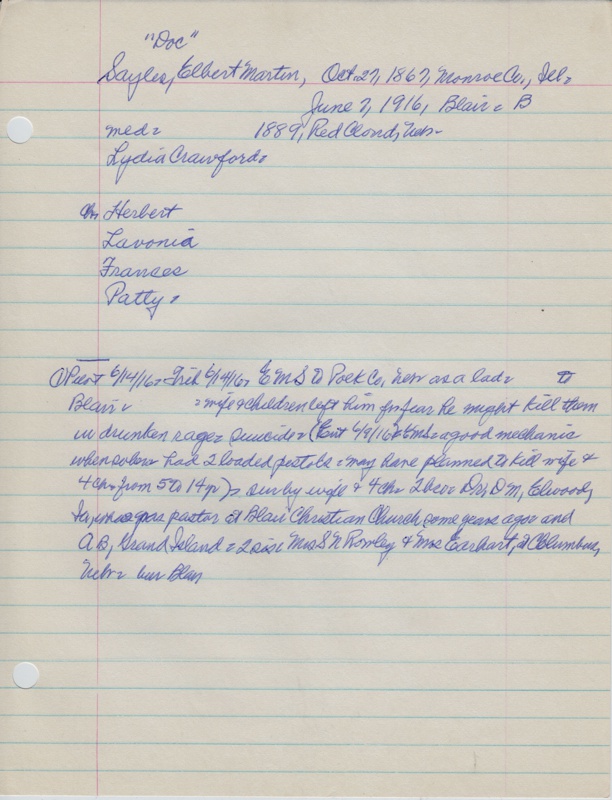 "Doc"
Sayles, Elbert Martin, Oct. 27, 1867, Monroe Co., Ill.
June 7, 1916, Blair. B
med. 1889, Red Cloud, Neb.
Lydia Crawford.
ch. Herbert
Lavonia
Frances
Patty.
① Pilot 6/14/16. Trib 6/14/16. EMS to Polk Co, Nebr as a lad. to
Blair. wife & children left him for fear he might kill them
in drunken rage. suicide. (Ent 6/9/16. EMS. a good mechanic
when sober. had 2 loaded pistols. may have planned to kill wife &
4 ch. from 5 to 14 yr). sur by wife & 4 ch. 2 bros. Dr. D M, Elwood,
Ia, who was pastor at Blair Christian Church some years ago and
A B, Grand Island. 2 sis. Mrs S N Rowley & Mrs Earhart, at Columbus,
Nebr. bur Blair